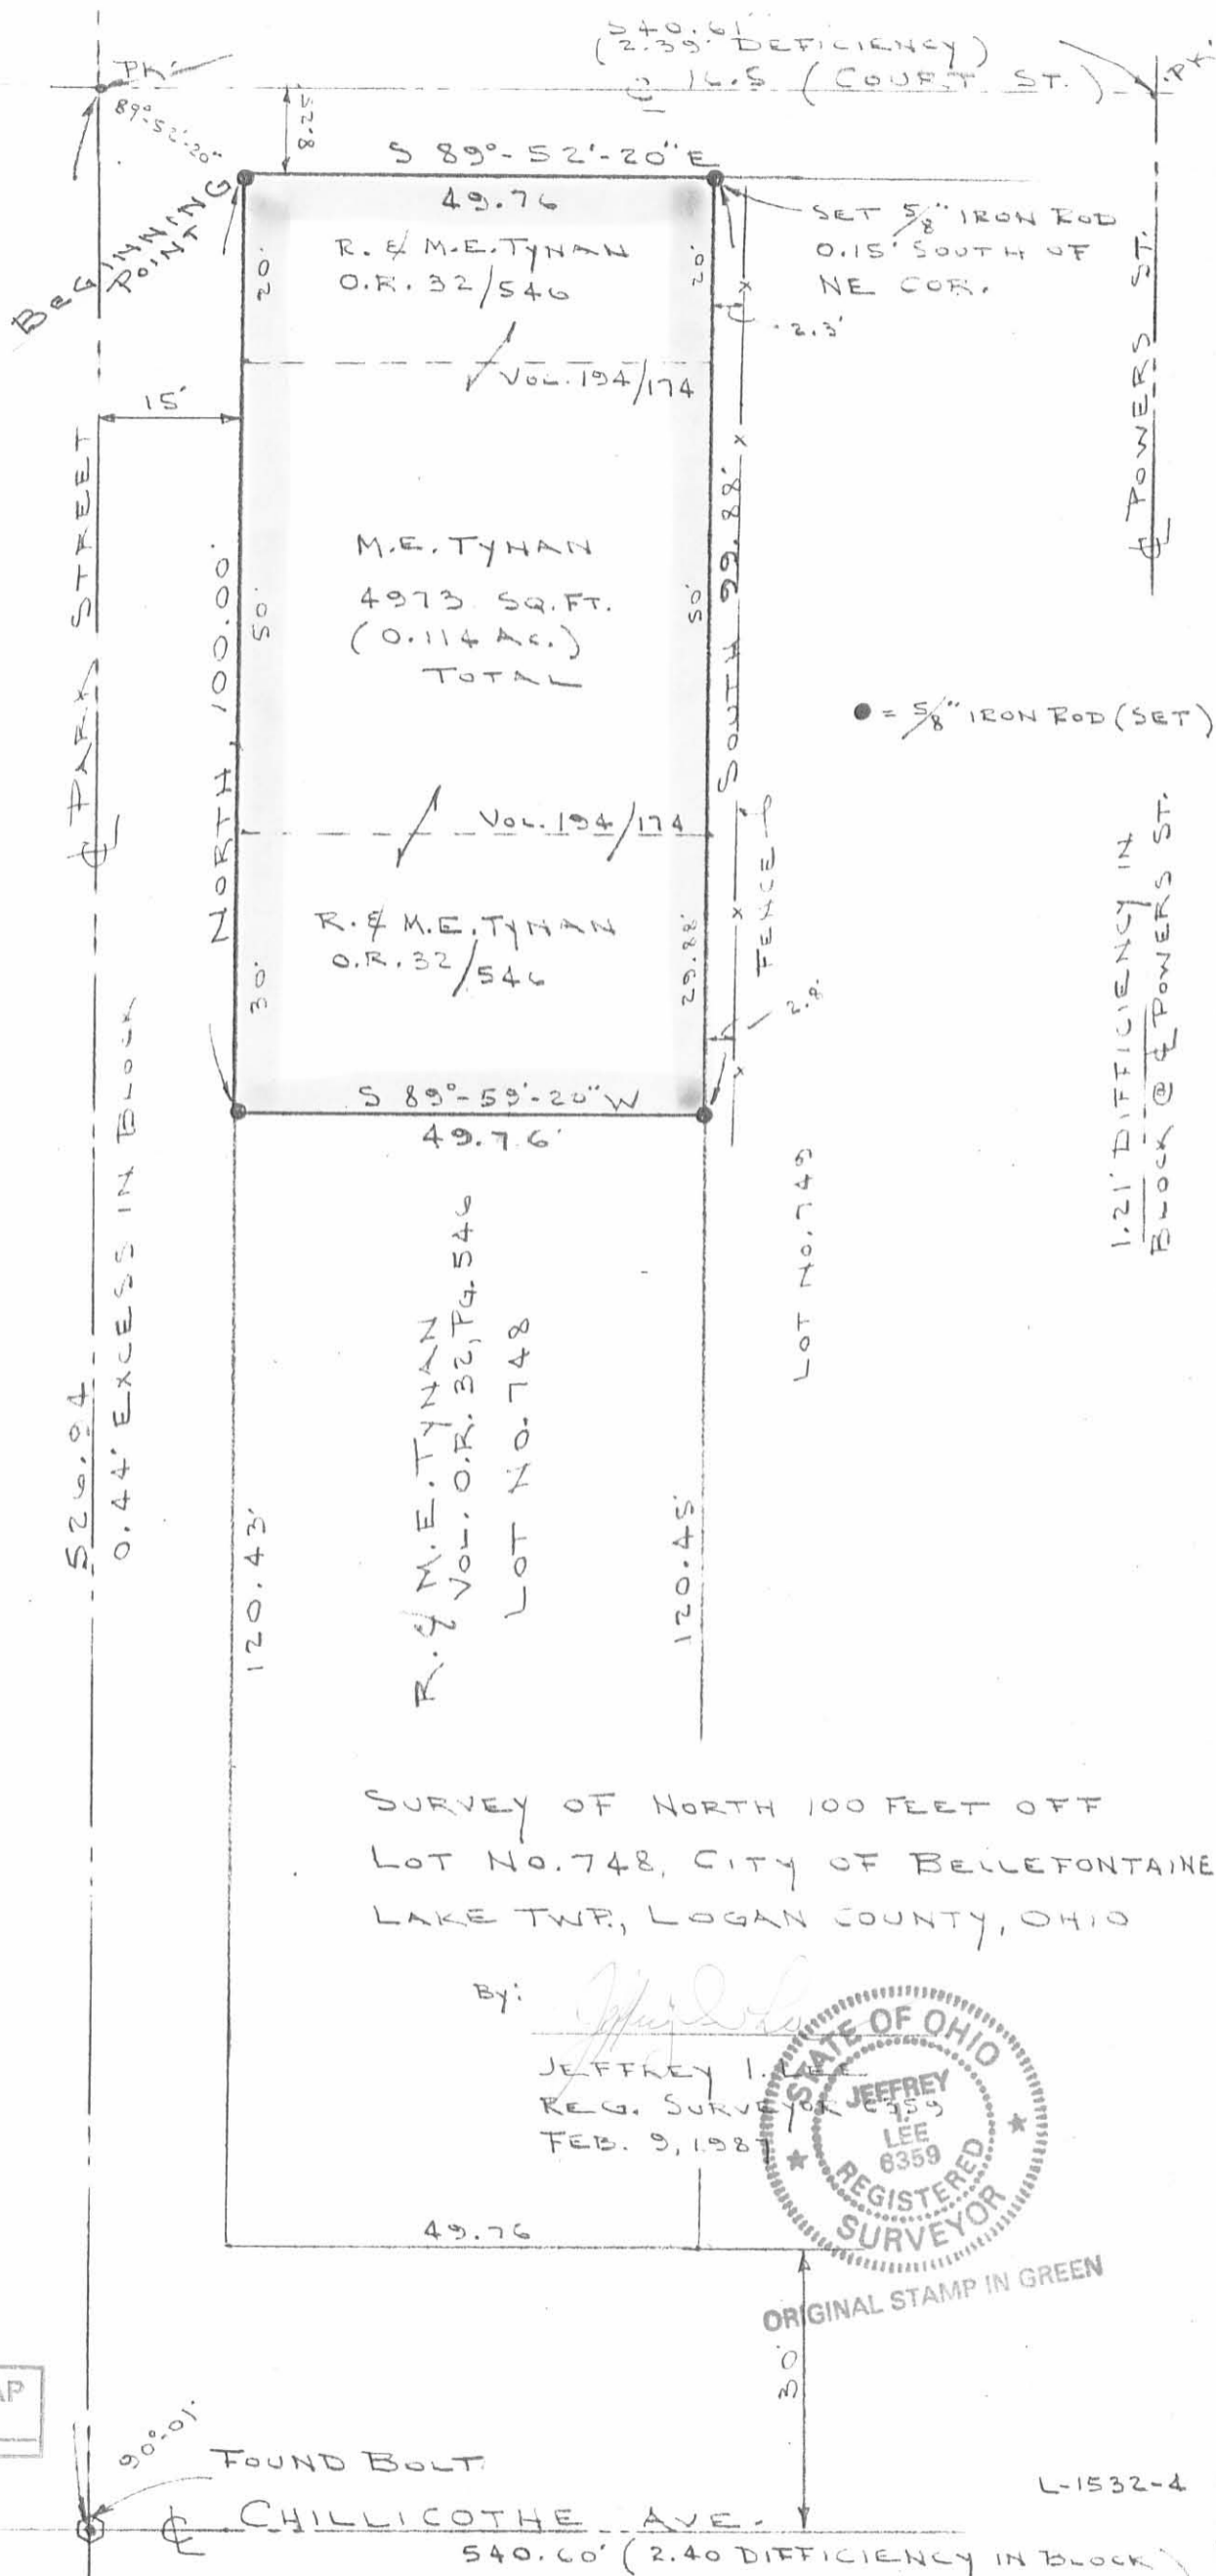 540.61'
(2.39' DEFICIENCY)
℄ 16.5 (COURT ST.)
PK
PK
89°-52'-20"
8.25
S 89°-52'-20" E
49.76
BEGINNING
POINT
SET 5/8" IRON ROD
0.15' SOUTH OF
NE COR.
R. & M.E. TYNAN
O.R. 32/546
20'
20'
2.3'
VOL. 194/174
15'
℄ PARK STREET
℄ POWERS ST.
NORTH 100.00'
50'
M.E. TYNAN
4973 SQ. FT.
(0.114 AC.)
TOTAL
50'
SOUTH 99.88'
● = 5/8" IRON ROD (SET)
VOL. 194/174
FENCE
R. & M.E. TYNAN
O.R. 32/546
30'
29.88'
2.8'
S 89°-59'-20" W
49.76'
1.21' DIFFICIENCY IN
BLOCK @ ℄ POWERS ST.
526.94
0.44' EXCESS IN BLOCK
LOT NO. 749
R. & M.E. TYNAN
VOL. O.R. 32, PG. 546
LOT NO. 748
120.43'
120.45'
SURVEY OF NORTH 100 FEET OFF
LOT NO. 748, CITY OF BELLEFONTAINE
LAKE TWP., LOGAN COUNTY, OHIO
By:
JEFFREY I. LEE
REG. SURVEYOR 6359
FEB. 9, 1987
STATE OF OHIO
JEFFREY
I.
LEE
6359
REGISTERED
SURVEYOR
ORIGINAL STAMP IN GREEN
49.76
30'
AP
90°-01'
FOUND BOLT
L-1532-4
℄ CHILLICOTHE AVE.
540.60' (2.40 DIFFICIENCY IN BLOCK)